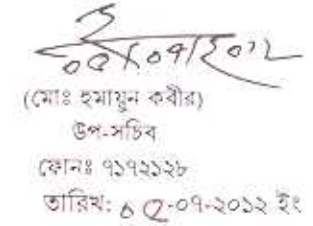 ০৫/০৭/২০১২
(মোঃ হুমায়ুন কবীর)
উপ-সচিব
ফোনঃ ৭১৭২১২৮
তারিখ: ০৫-০৭-২০১২ ইং